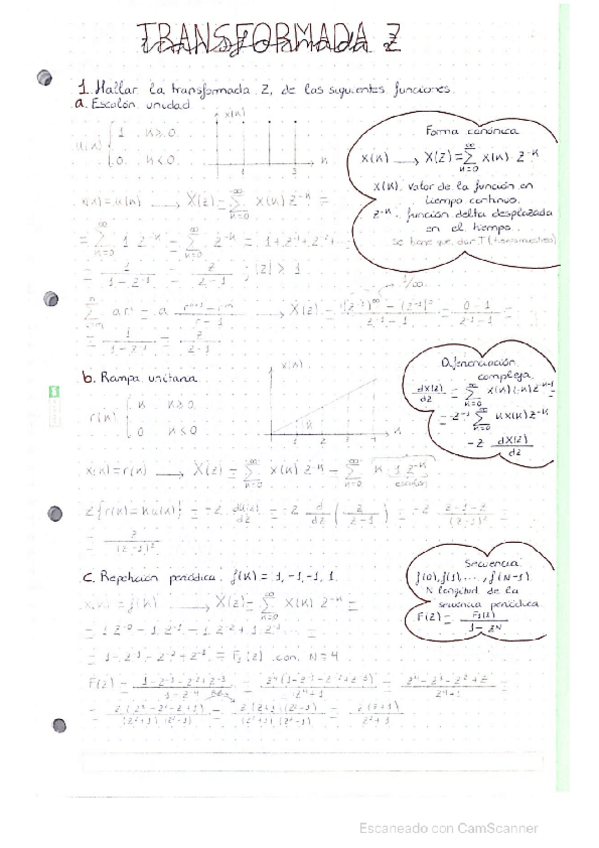 TRANSFORMADA Z
1. Hallar la transformada Z, de las siguientes funciones.
a. Escalón unidad
x(k)
u(k) { 1 k ≥ 0
0 k < 0
1 3 k
Forma canónica
x(k) → X(z) = ∑ k=0 ∞ x(k) z^-k
x(k): Valor de la función en
tiempo continuo.
z^-k: función delta desplazada
en el tiempo.
se tiene que dar T
x(k) = u(k) → X(z) = ∑ k=0 ∞ x(k) z^-k =
= ∑ k=0 ∞ 1 z^-k = ∑ k=0 ∞ z^-k = 1 + z^-1 + z^-2 +
= 1/(1 - z^-1) = z/(z - 1) ; |z| > 1
1/∞
→ X(z) = = (0 - 1)/(z^-1 - 1) =
= 1/(1 - z^-1) = z/(z - 1)
b. Rampa unitaria
x(k)
r(k) { k k ≥ 0
0 k < 0
k
Diferenciación
compleja
dX(z)/dz = ∑ k=0 ∞ x(k)(-k) z^-k-1 =
= -z^-1 ∑ k=0 ∞ k x(k) z^-k
-z dX(z)/dz
x(k) = r(k) → X(z) = ∑ k=0 ∞ x(k) z^-k = ∑ k=0 ∞ k 1 z^-k
escalón
Z{r(k) = k u(k)} = -z du(z)/dz = -z d/dz ( z/(z - 1) ) = -z (z - 1 - z)/(z - 1)² =
= z/(z - 1)²
c. Repetición periódica f(k) = 1, -1, -1, 1.
Secuencia
f(0), f(1), ..., f(N-1)
N longitud de la
secuencia periódica
x(k) = f(k) → X(z) = ∑ k=0 ∞ x(k) z^-k =
= 1 z^-0 - 1 z^-1 - 1 z^-2 + 1 z^-3 =
= 1 - z^-1 - z^-2 + z^-3 = F₁(z) con N = 4
Escaneado con CamScanner